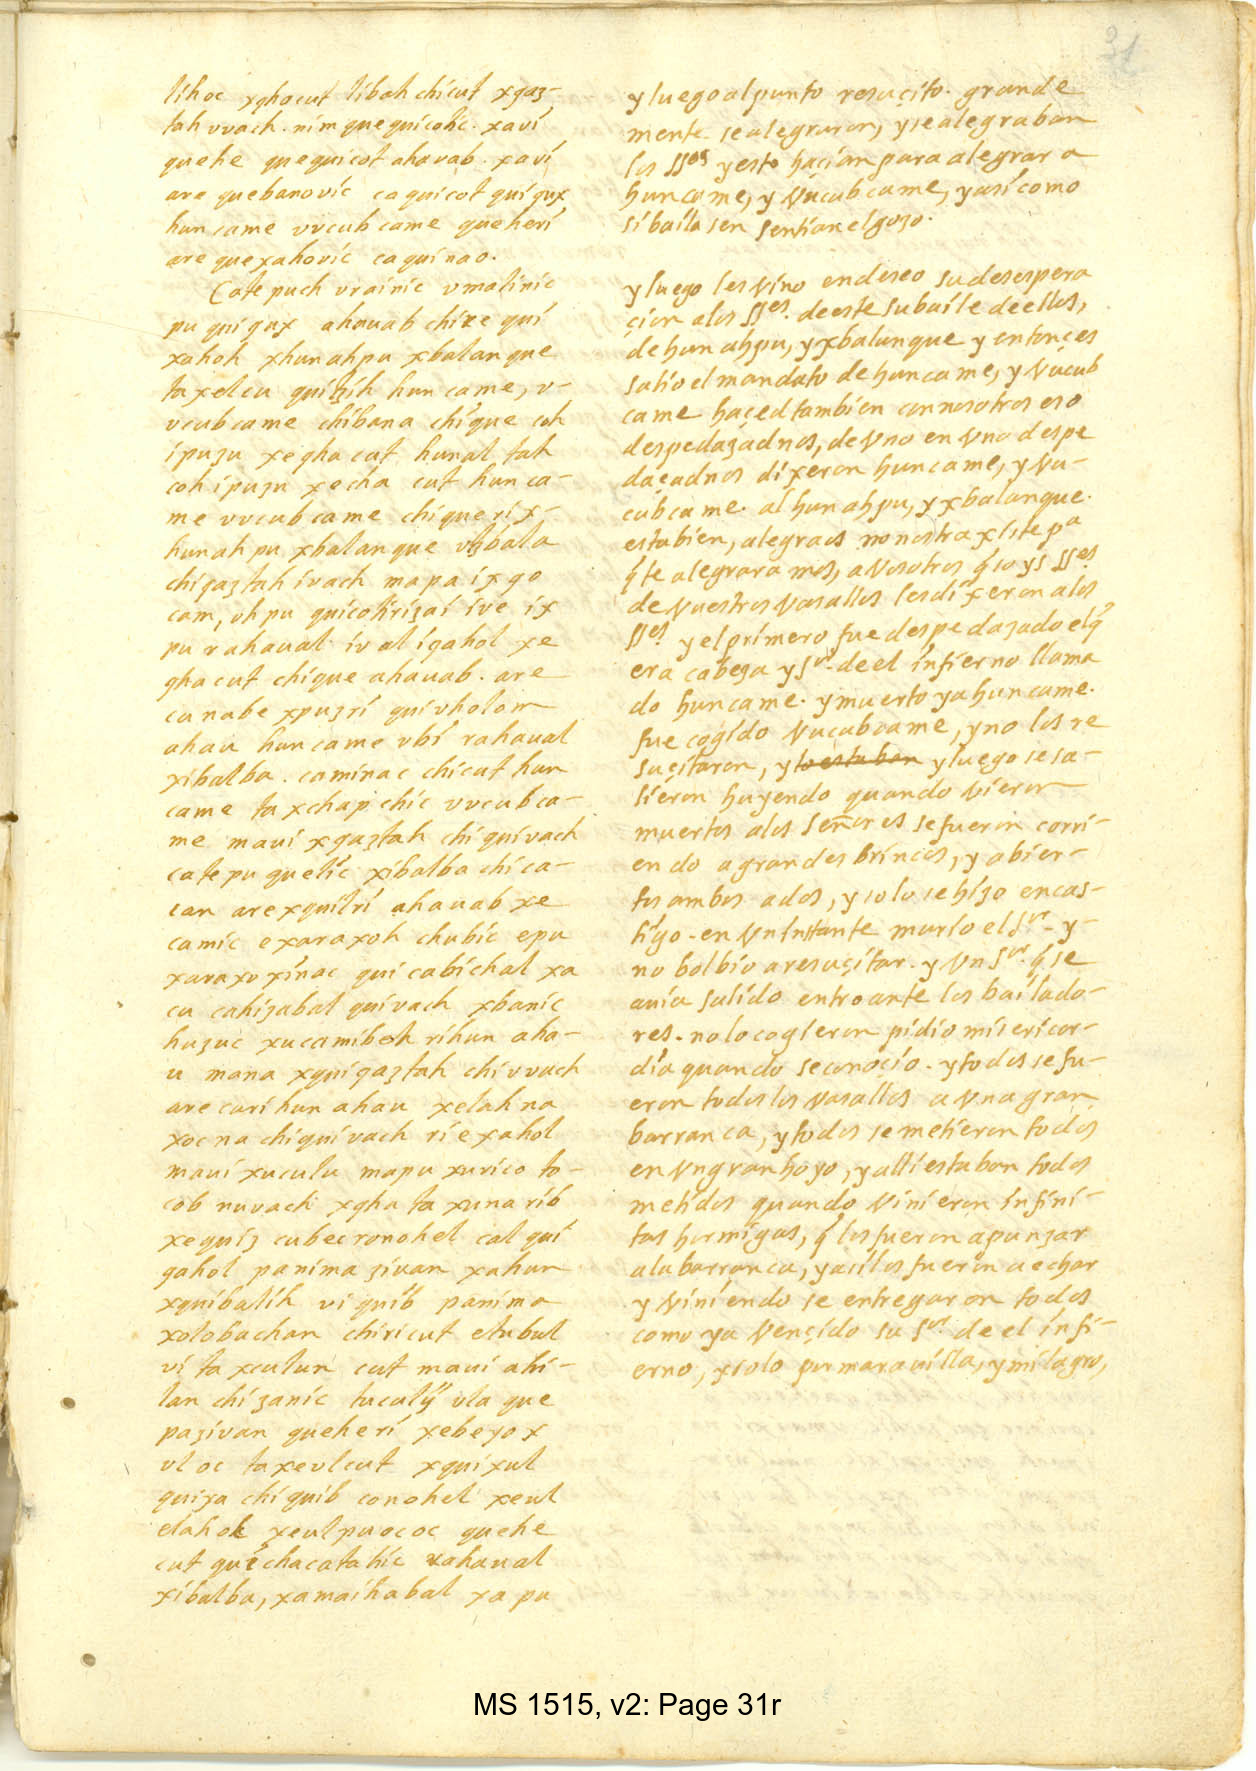 31
lihoc xqhacut libah chicut xqaz-
tah vvach. nim quequicotic. xavi
quehe quequicot ahauab. xavi
are quebanovic caquicot quiqux
huncame vvcubcame queheri
are quexahovic caquinao.
Catepuch vrainic vmalinic
pu quiqux ahauab chire qui
xahoh xhunahpu xbalanque
taxelcu quitzih huncame, v-
vcubcame chibana chique coh
ipuzu xeqha cut hunal tah
cohipuzu xecha cut hunca-
me vvcubcame chiquerix-
hunahpu xbalanque vtzbala
chizaztah ivach mapa ix qo
cam, oh pu quicotirizai ive ix
pu rahaual ival iqahol xe
qhacut chique ahauab. are
canabe xpuzri quivholom
ahau huncame vbi rahaual
xibalba. caminac chicut hun
came ta xchap chic vvcubca-
me maui xqaztah chiquivach
catepu quelic xibalba chica-
can arexquilri ahauab xe
camic exaraxoh chubic epu
xaraxoxinac quicabichal xa
cu cahizabal quivach xbanic
huzuc xucamibeh rihun aha-
u mana xquiqaztah chivvach
are cari hun ahau xelahna
xoc na chiquivach ri exahol
maui xuculu mapu xurico to-
cob nuvach xqha ta xuna rib
xequiz cubec ronohel cal qui
qahol panima zivan xahun
xquibalih vi quib panima
xolobachan chiricut etubul
vi ta xculun cut maui ahi-
lan chi zanic tuculÿ ula que
pazivan queheri xebeyox
vloc taxeulcut xquixul
quixa chiquib conohel xeul
elahok xeulpuococ quehe
cut quichacatahic rahaual
xibalba, xamaihabal xa pu
y luego al punto resuçito. grande
mente se alegraron, y se alegraban
los ssos y esto haçian para alegrar a
huncame, y Vucubcame, y así como
si bailasen sentian el gozo.
y luego les vino en deseo su desespera
çion a los sses. de este su baile de ellos,
de hunahpu, y xbalanque y entonçes
salio el mandato de huncame, y Vucub
came haçed tambien con nosotros eso
despedazadnos, de vno en vno despe
daçadnos dixeron huncame, y Vu-
cubcame. al hunahpu, y xbalanque.
esta bien, alegraos no nostraxiste pa
q̃ te alegraramos, a Vosotros q̃ soys sses
de Vuestros Vasallos les dixeron a los
sses y el primero fue despedazado el q̃
era cabeza y sr. de el infierno llama
do huncame. y muerto ya huncame.
fue cogido Vucubcame, y no los re
suçitaron, y lo estaban y luego se sa-
lieron huyendo quando vieron
muertos a los Señores se fueron corri-
endo a grandes brincos, y abier-
tos ambos ados, y solo se hizo en cas-
tigo. en Vn instante murio el sr. y-
no bolbio a resuçitar. y Vn sr. q̃ se
auia salido entro ante los bailado-
res. no lo cogieron pidio misericor-
dia quando se conoçio. y todos se fu-
eron todos los vasallos a Vna gran
barranca, y todos se metieron todos
en Vn gran hoyo, y alli estaban todos
metidos quando Vinieron infini-
tas hormigas, q̃ los fueron a punzar
a la barranca, y asi los fueron a echar
y Viniendo se entregaron todos
como ya Vençido su sr. de el infi-
erno, x solo por marauilla, y milagro,
MS 1515, v2: Page 31r